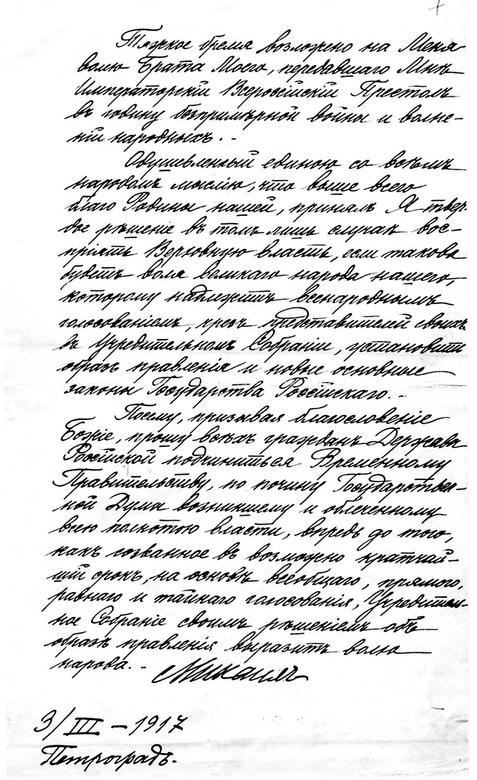 Тяжкое бремя возложено на Меня
волею Брата Моего, передавшаго Мнѣ
Императорскій Всероссійскій Престолъ
въ годину безпримѣрной войны и волне-
ній народныхъ.-
Одушевленный единою со всѣмъ
народомъ мыслію, что выше всего
благо Родины нашей, принялъ Я твер-
дое рѣшеніе въ томъ лишь случаѣ вос-
пріять Верховную власть, если такова
будетъ воля великаго народа нашего,
которому надлежитъ всенароднымъ
голосованіемъ, чрезъ представителей своихъ
въ Учредительномъ Собраніи, установить
образъ правленія и новые основные
законы Государства Россійскаго.-
Посему, призывая благословеніе
Божіе, прошу всѣхъ гражданъ Державы
Россійской подчиниться Временному
Правительству, по почину Государствен-
ной Думы возникшему и облеченному
всею полнотою власти, впредь до того,
какъ созванное въ возможно кратчай-
шій срокъ, на основѣ всеобщаго, прямого,
равнаго и тайнаго голосованія, Учредитель-
ное Собраніе своимъ рѣшеніемъ объ
образѣ правленія выразитъ волю
народа.-
Михаилъ
3/III – 1917
Петроградъ.